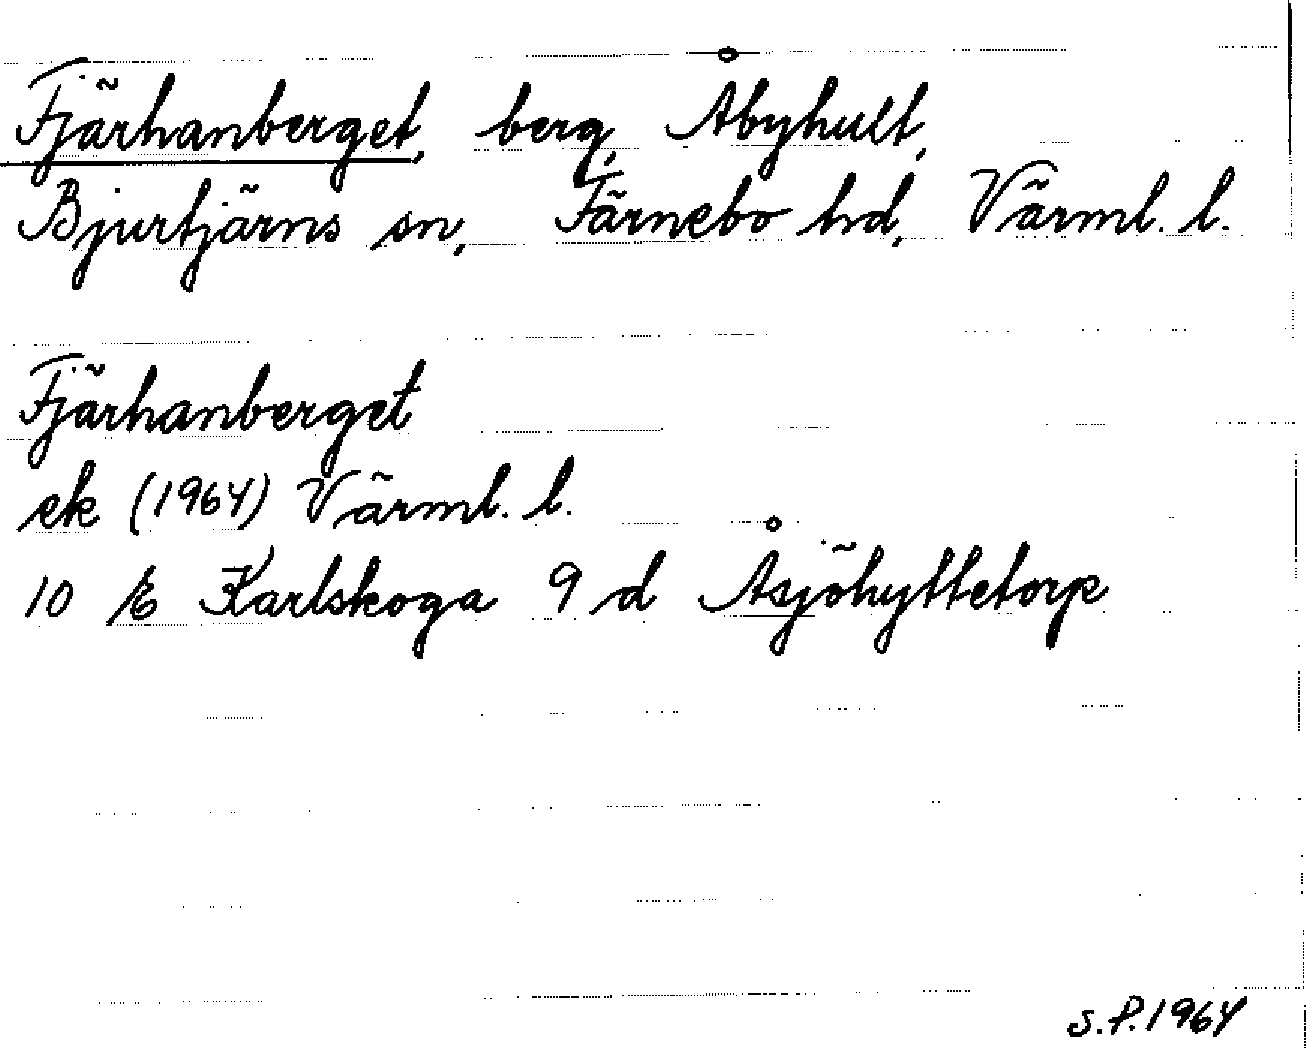 Fjärhanberget, berg, Åbyhult,
Bjurtjärns sn, Färnebo hd, Värml. l.
Fjärhanberget
ek (1964) Värml. l.
10 E Karlskoga 9 d Åsjöhyttetorp
S.P. 1964